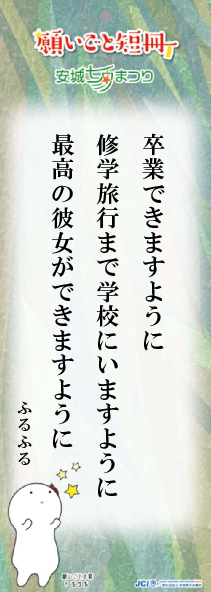 願いごと短冊
安城七夕まつり
卒業できますように
修学旅行まで学校にいますように
最高の彼女ができますように
ふるふる
JCI